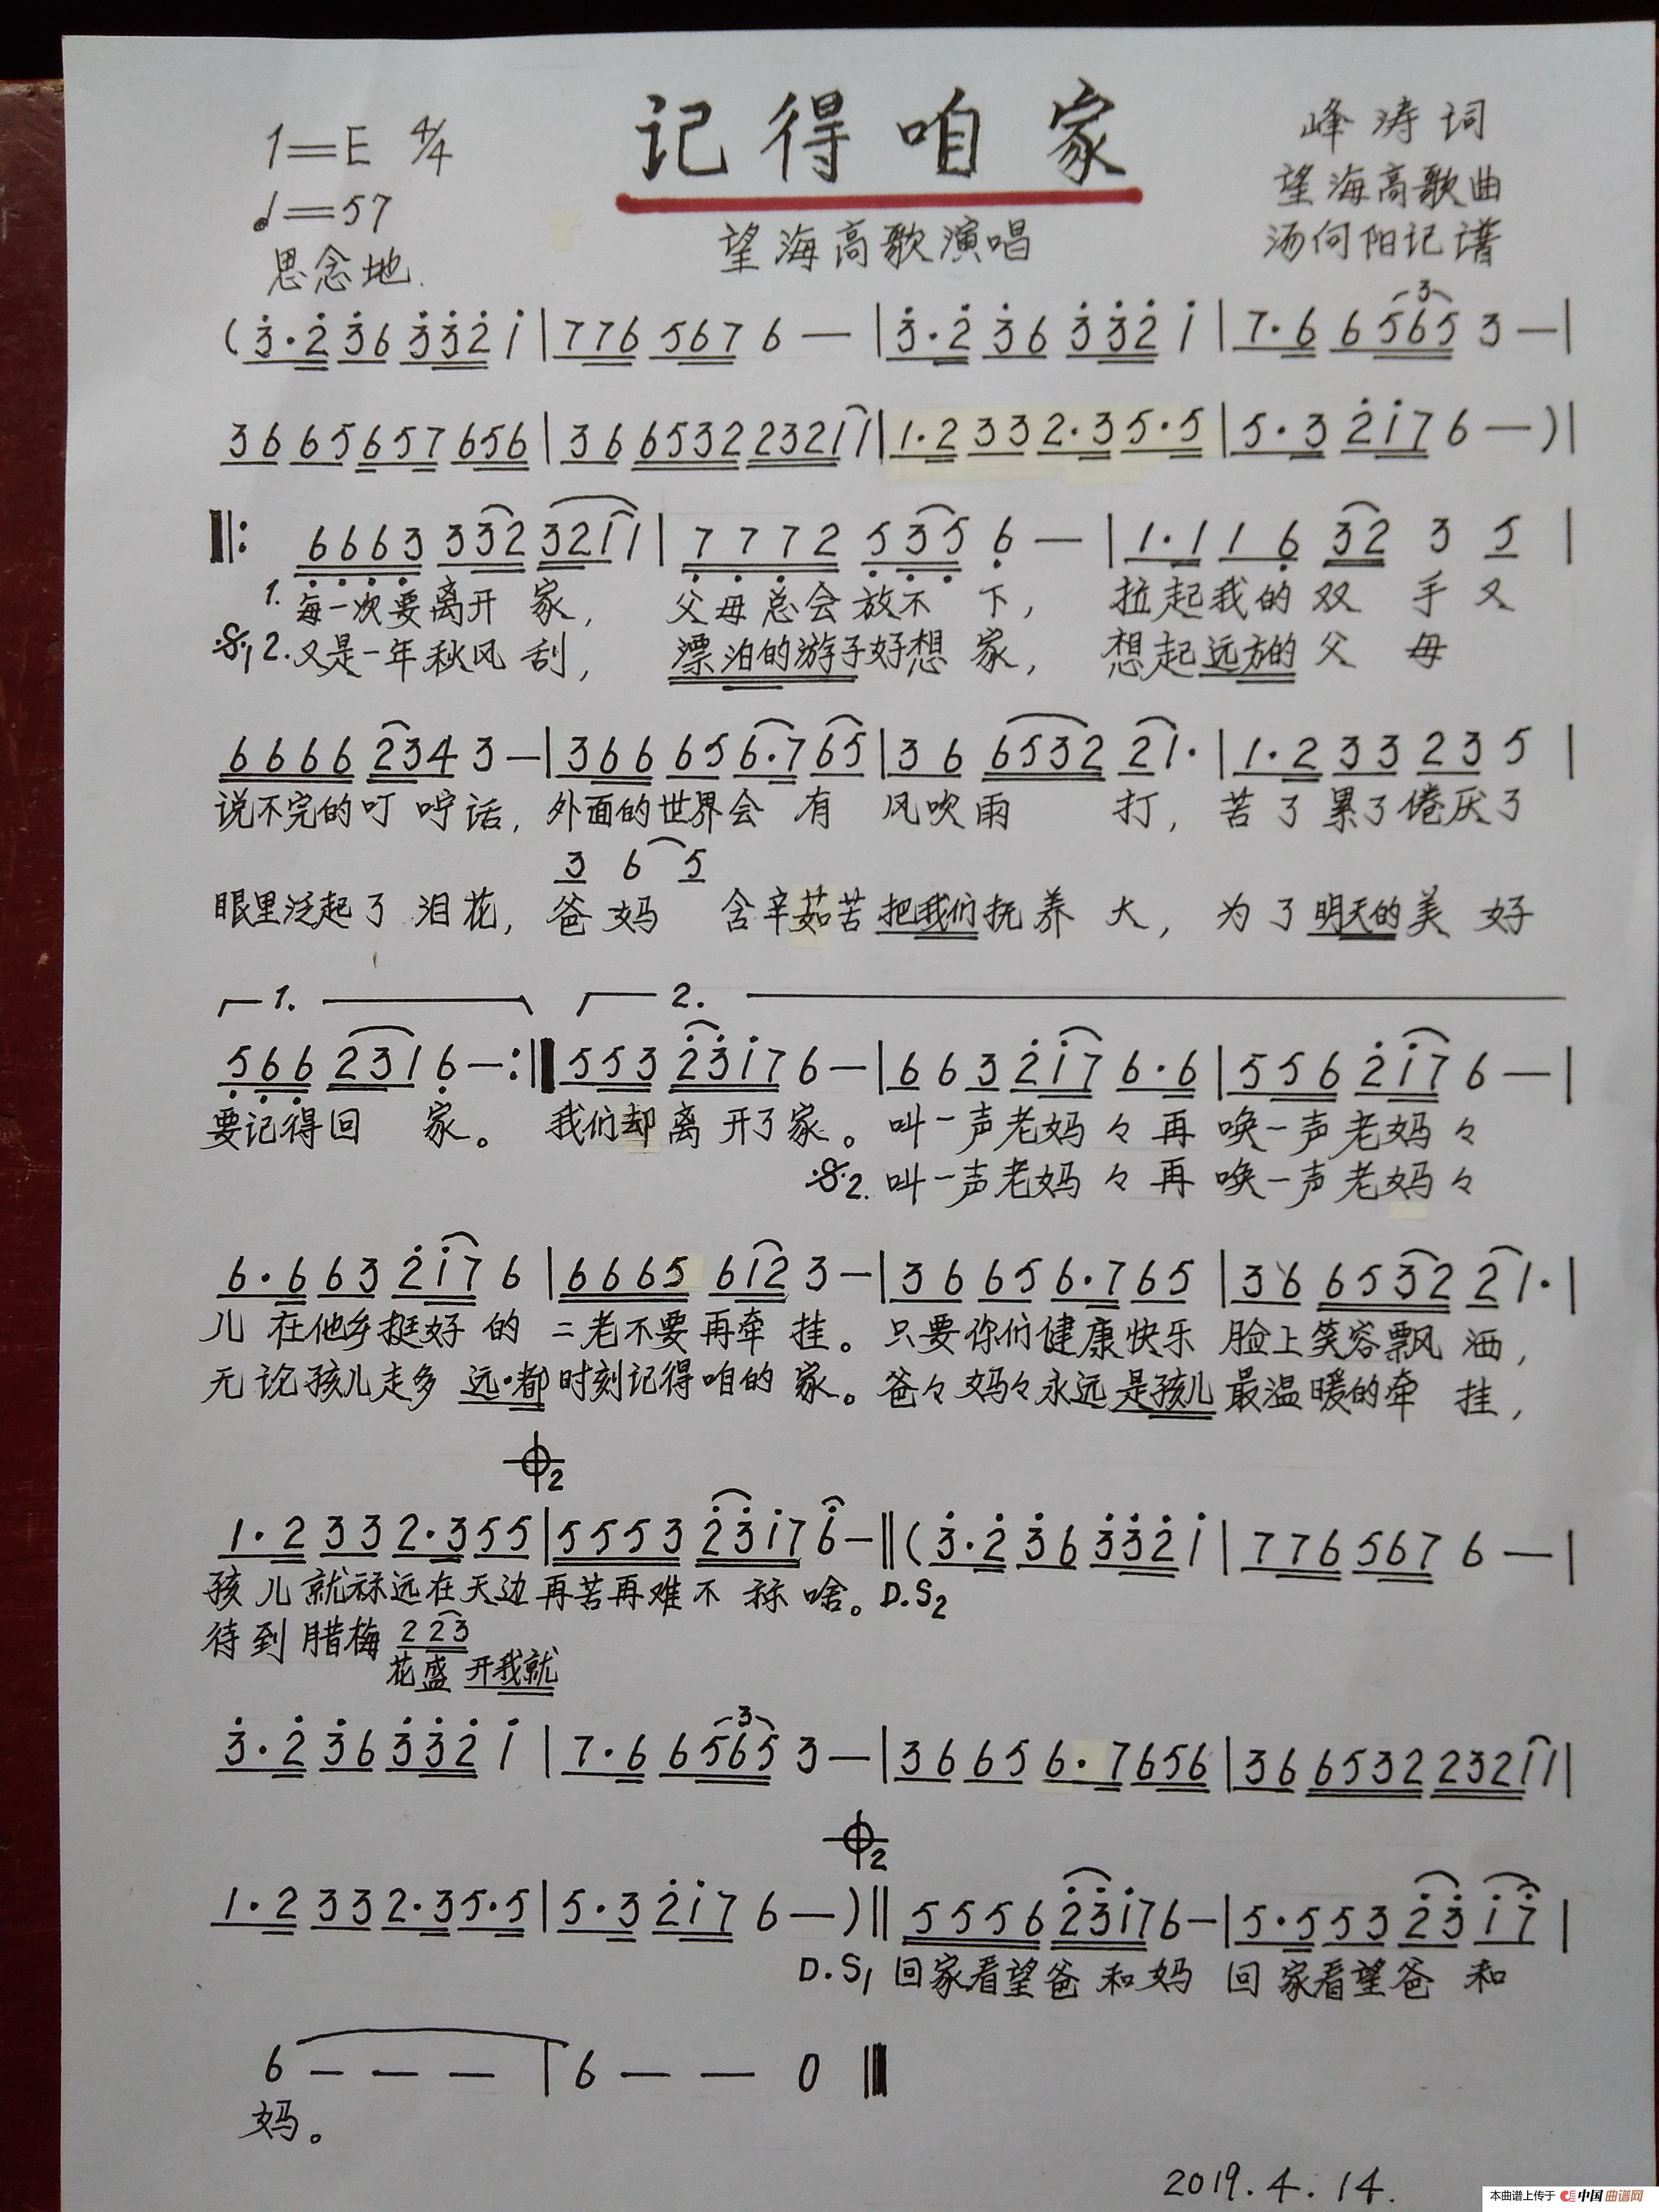 记得咱家
1=E 4/4
♩=57
思念地.
峰涛词
望海高歌曲
汤向阳记谱
望海高歌演唱
(3·2 36 332 1|776 567 6 —|3·2 36 332 1|7·6 6 565 3 —|
36 65 657 656|36 6532 2321 1|1·2 33 2·3 5·5|5·3 217 6 —)|
‖: 6663 332 3211|7772 535 6 —|1·1 16 32 3 5|
1. 每一次要离开家, 父母总会放不下, 拉起我的双手又
𝄋1 2. 又是一年秋风刮, 漂泊的游子好想家, 想起远方的父母
6666 234 3 —|366 65 6·7 65|36 6532 21·|1·2 33 23 5|
说不完的叮咛话, 外面的世界会有风吹雨打, 苦了累了倦厌了
3 6 5
眼里泛起了泪花, 爸妈含辛茹苦把我们抚养大, 为了明天的美好
1. 2.
566 231 6 — :‖553 2317 6 —|663 217 6·6|556 217 6 —|
要记得回家。 我们却离开了家。 叫一声老妈々再唤一声老妈々
𝄋2. 叫一声老妈々再唤一声老妈々
6·6 63 217 6|6665 612 3 —|36 65 6·7 65|36 6532 21·|
儿在他乡挺好的二老不要再牵挂。只要你们健康快乐脸上笑容飘洒,
无论孩儿走多远·都时刻记得咱的家。爸々妈々永远是孩儿最温暖的牵挂,
𝄌2
1·2 33 2·3 55|5553 2317 6 —‖(3·2 36 332 1|776 567 6 —|
孩儿就远在天边再苦再难不啥。D.S2
待到腊梅 2 23
花盛开我就
3·2 36 332 1|7·6 6 565 3 —|36 65 6·7 656|36 6532 2321 1|
𝄌2
1·2 33 2·3 5·5|5·3 217 6 —)‖5556 2317 6 —|5·5 53 23 17|
D.S1 回家看望爸和妈 回家看望爸和
6 — — —|6 — — 0‖
妈。
2019.4.14.
本曲谱上传于 中国曲谱网